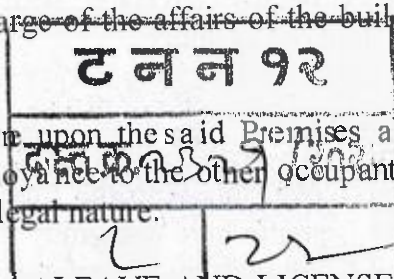 arge of the affairs of the buil
ट न न १२
re upon the said Premises a
oyance to the other occupant
legal nature.
LEAVE AND LICENSE